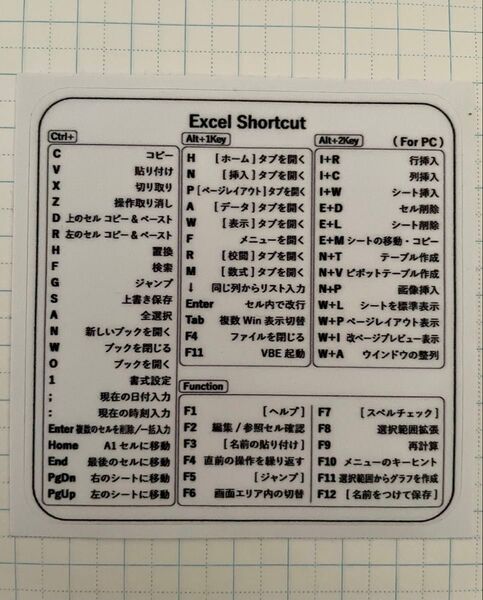 Excel Shortcut
(For PC)
Ctrl+
C コピー
V 貼り付け
X 切り取り
Z 操作取り消し
D 上のセル コピー & ペースト
R 左のセル コピー & ペースト
H 置換
F 検索
G ジャンプ
S 上書き保存
A 全選択
N 新しいブックを開く
W ブックを閉じる
O ブックを開く
1 書式設定
; 現在の日付入力
: 現在の時刻入力
Enter 複数のセルを削除/一括入力
Home A1 セルに移動
End 最後のセルに移動
PgDn 右のシートに移動
PgUp 左のシートに移動
Alt+1Key
H [ホーム]タブを開く
N [挿入]タブを開く
P [ページレイアウト]タブを開く
A [データ]タブを開く
W [表示]タブを開く
F メニューを開く
R [校閲]タブを開く
M [数式]タブを開く
↓ 同じ列からリスト入力
Enter セル内で改行
Tab 複数 Win 表示切替
F4 ファイルを閉じる
F11 VBE 起動
Alt+2Key
I+R 行挿入
I+C 列挿入
I+W シート挿入
E+D セル削除
E+L シート削除
E+M シートの移動・コピー
N+T テーブル作成
N+V ピボットテーブル作成
N+P 画像挿入
W+L シートを標準表示
W+P ページレイアウト表示
W+I 改ページプレビュー表示
W+A ウインドウの整列
Function
F1 [ヘルプ]
F2 編集 / 参照セル確認
F3 [名前の貼り付け]
F4 直前の操作を繰り返す
F5 [ジャンプ]
F6 画面エリア内の切替
F7 [スペルチェック]
F8 選択範囲拡張
F9 再計算
F10 メニューのキーヒント
F11 選択範囲からグラフを作成
F12 [名前をつけて保存]